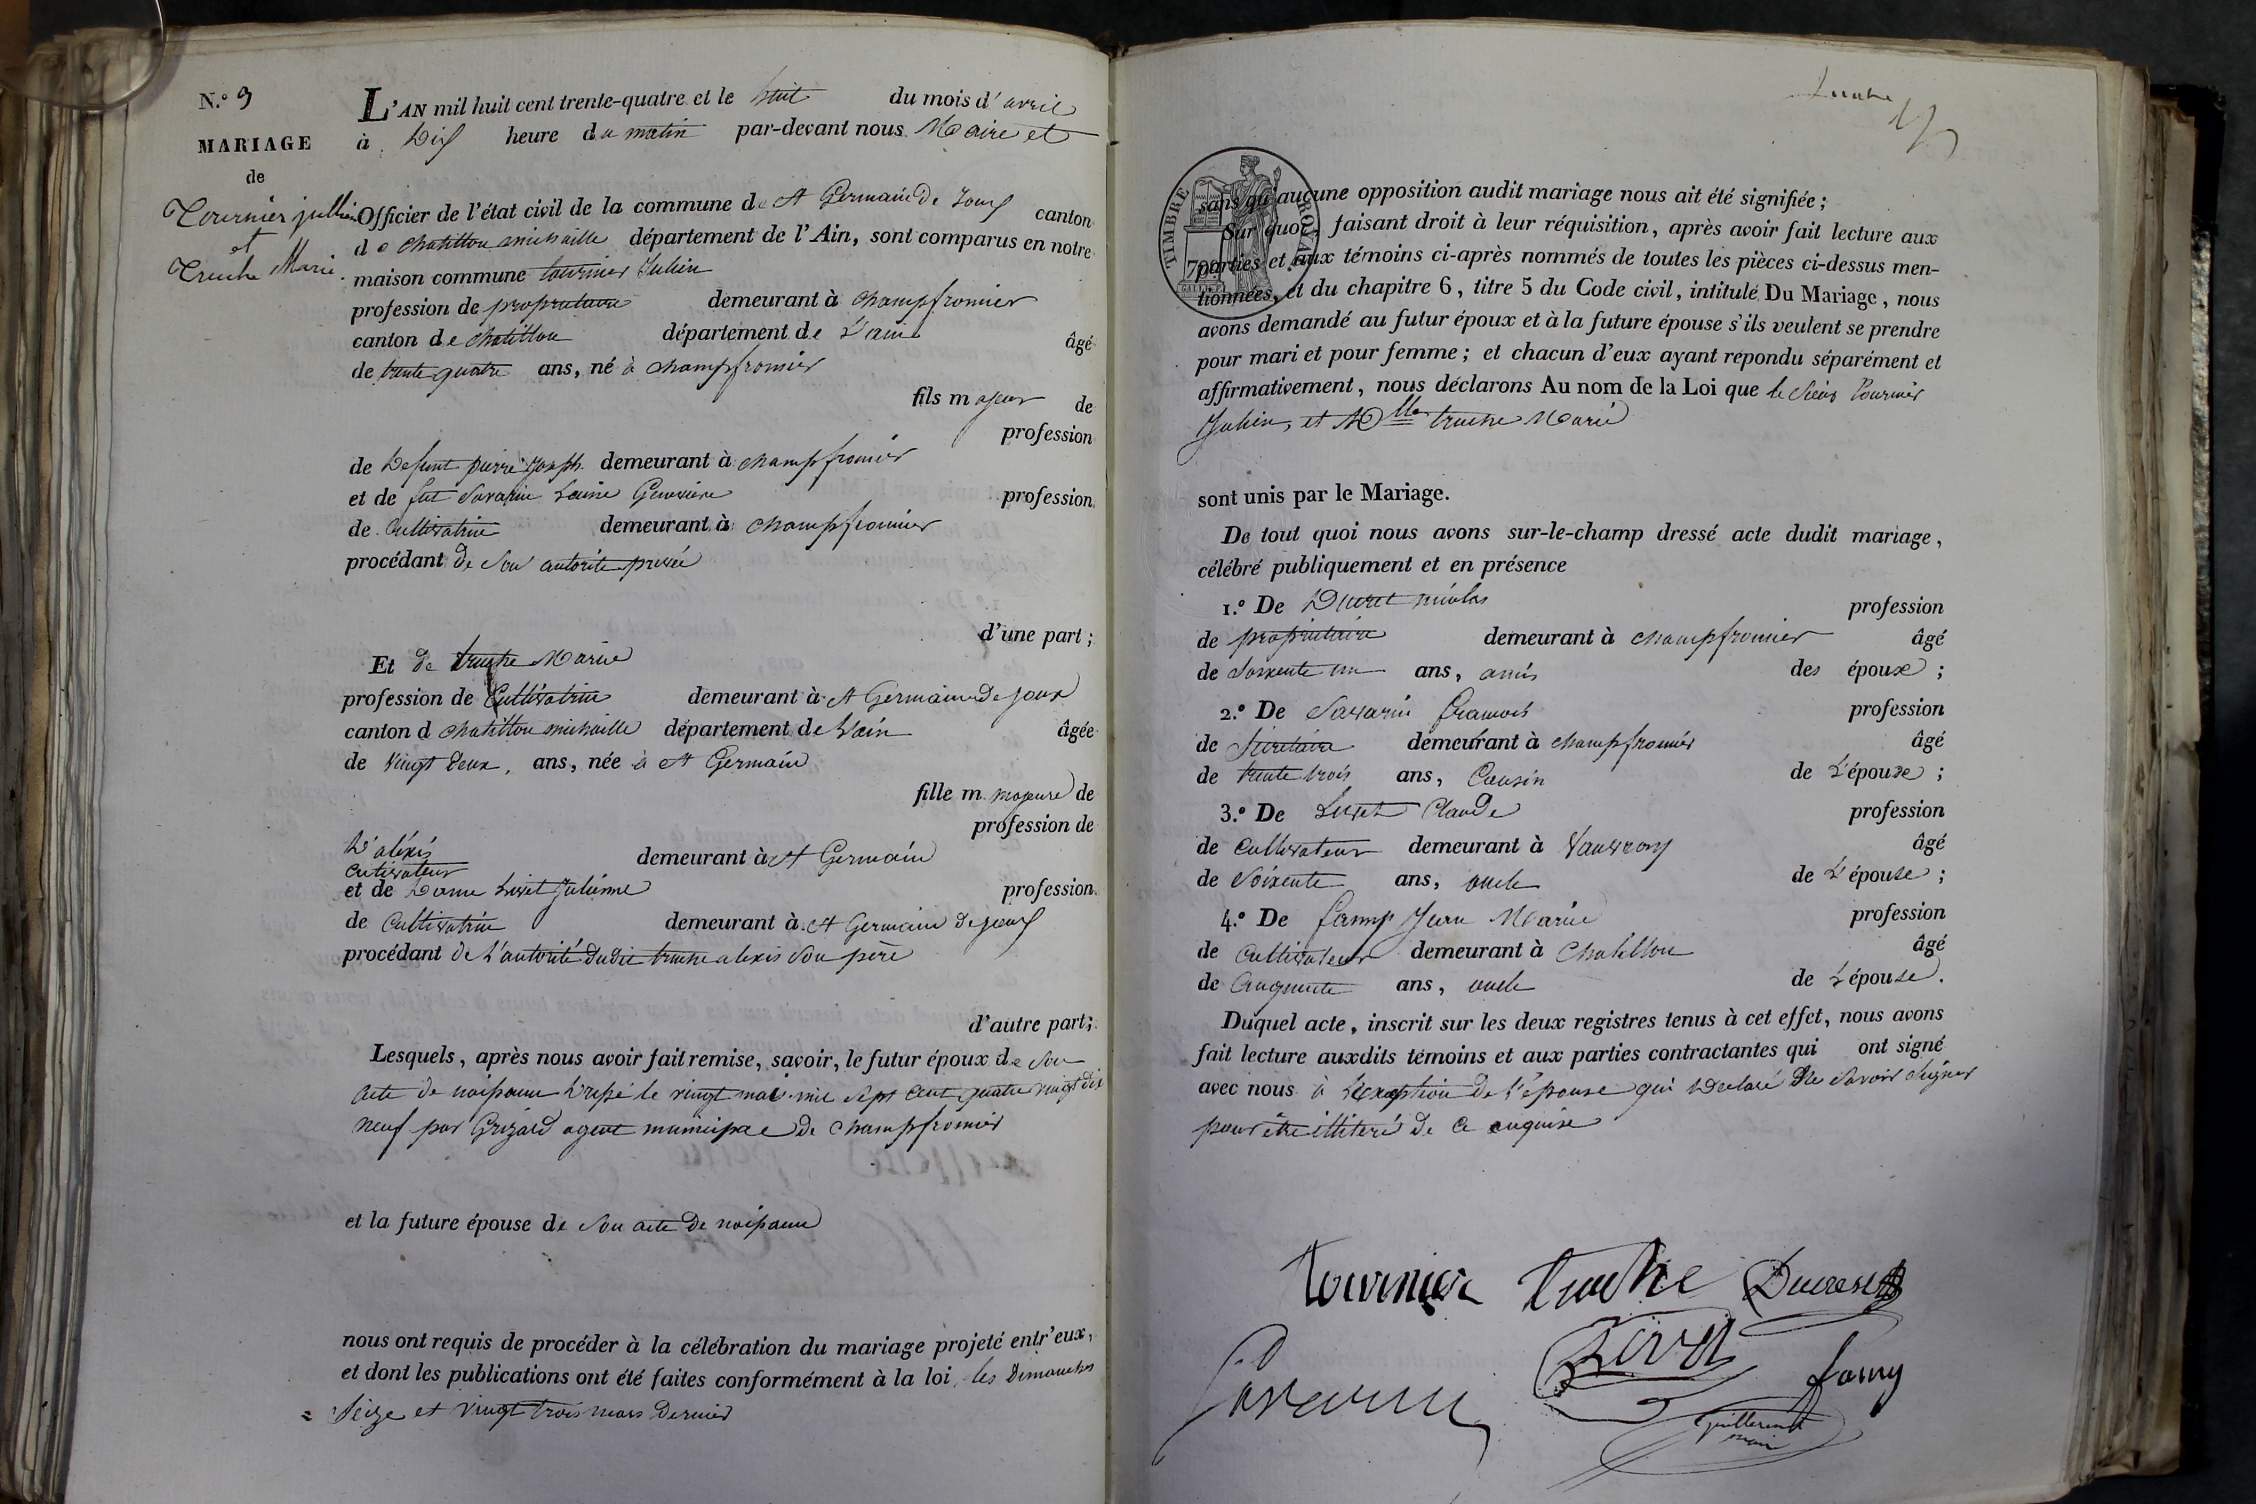 N.º 9
MARIAGE
de
Tournier jullien
et
Truche Marie.
L'AN mil huit cent trente-quatre et le huit du mois d'avril
à Dix heure du matin par-devant nous Maire et
Officier de l'état civil de la commune de St Germain De Joux canton
de chatillon michaille département de l'Ain, sont comparus en notre
maison commune tournier Julien
profession de propriétaire demeurant à champfromier
canton de chatillon département de L'ain âgé
de trente quatre ans, né à champfromier
fils majeur de
profession
de Defunt pierre Joseph demeurant à champfromier
et de fut Savarin Louise Genevieve profession
de Cultivatrice demeurant à champfromier
procédant de Son autorité privée
d'une part;
Et de truche Marie
profession de Cultivatrice demeurant à St Germain De Joux
canton d chatillon michaille département de L'ain âgée
de Vingt Deux, ans, née à St Germain
fille m. majeure de
profession de
D'aléxis
Cutivateur
demeurant à St Germain
et de Dame Livet Julienne profession
de Cultivatrice demeurant à St Germain de joux
procédant de L'autorité dudit truche alexis Son père
d'autre part;
Lesquels, après nous avoir fait remise, savoir, le futur époux de Son
acte de naissance Dressé le vingt mai mil Sept Cent quatre vingt dix
neuf par Grizard agent municipal de Champfromier
et la future épouse de Son acte De naissance
nous ont requis de procéder à la célébration du mariage projeté entr'eux,
et dont les publications ont été faites conformément à la loi, les Dimanches
Seize et vingt trois mars Dernier
Truche
TIMBRE ROYAL
sans qu'aucune opposition audit mariage nous ait été signifiée;
Sur quoi, faisant droit à leur réquisition, après avoir fait lecture aux
parties et aux témoins ci-après nommés de toutes les pièces ci-dessus men-
tionnées, et du chapitre 6, titre 5 du Code civil, intitulé Du Mariage, nous
avons demandé au futur époux et à la future épouse s'ils veulent se prendre
pour mari et pour femme; et chacun d'eux ayant répondu séparément et
affirmativement, nous déclarons Au nom de la Loi que le Sieur Tournier
Julien, et Mlle truche Marie
sont unis par le Mariage.
De tout quoi nous avons sur-le-champ dressé acte dudit mariage,
célébré publiquement et en présence
1.º De Ducret nicolas profession
de propriétaire demeurant à champfromier âgé
de Soixente un ans, amis des époux;
2.º De Savarin francois profession
de Sécretaire demeurant à champfromier âgé
de trente trois ans, Cousin de L'épouse;
3.º De Livet Claude profession
de Cultivateur demeurant à âgé
de Soixente ans, oncle de L'épouse;
4.º De famy Jean Marie profession
de Cultivateur demeurant à Chatillon âgé
de Cinquente ans, oncle de L'épouse.
Duquel acte, inscrit sur les deux registres tenus à cet effet, nous avons
fait lecture auxdits témoins et aux parties contractantes qui ont signé
avec nous à L'exception de L'épouse qui a Declaré Ne Savoir Signer
pour être illiteré de ce enquise
tournier truche Ducret
Savarin Livet famy
Guillermet
maire